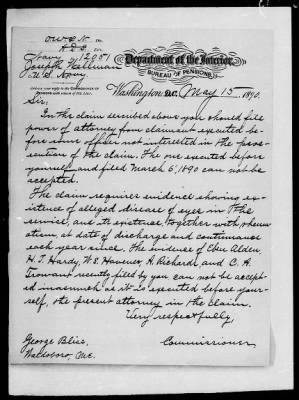 O.W. & N. Div.
Navy 12051
Joseph Hillman
U.S. Navy.
Department of the Interior,
BUREAU OF PENSIONS,
Washington, D.C., May 15, 1890.
Sir:
In the claim described above you should file
power of attorney from claimant executed be-
fore some officer not interested in the prose-
cution of the claim. The one executed before
yourself and filed March 6, 1890 can not be
accepted.
The claim requires evidence showing ex-
istence of alleged disease of eyes in the
service, and its existence, together with rheum-
atism, at date of discharge and continuance
each year since. The evidence of Eben Alden,
H. T. Hardy, W. S. Havener, A. Richards, and C. A.
Trowant recently filed by you can not be accept-
ed inasmuch as it is executed before your-
self, the present attorney in the claim.
Very respectfully,
George Bliss,
Commissioner
Waldoboro, Me.